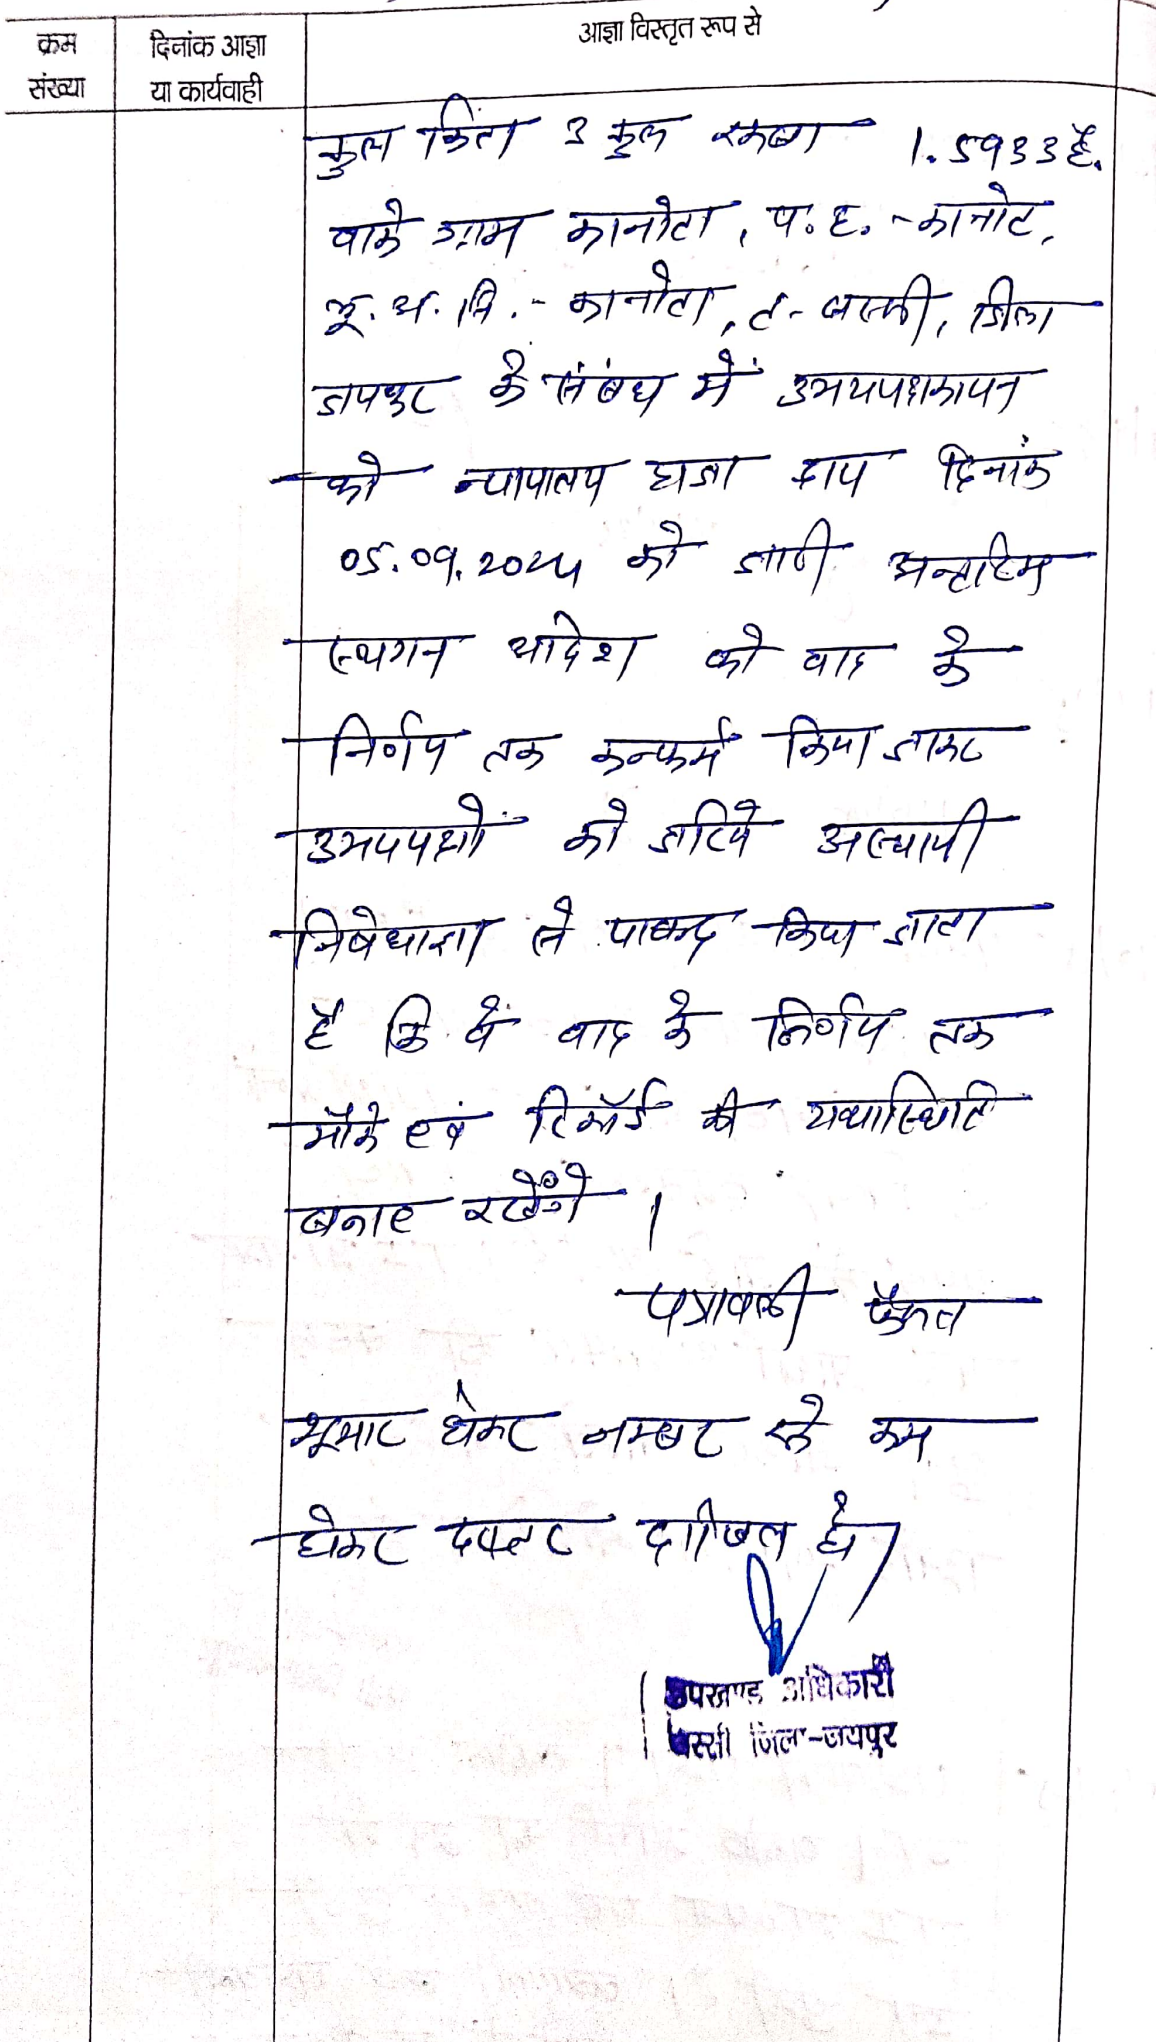 क्रम संख्या
दिनांक आज्ञा या कार्यवाही
आज्ञा विस्तृत रूप से
कुल किता 3 कुल रकबा 1.5933 है.
वाके ग्राम कानोता, प. ह. - कानोट,
भू. अ. नि. - कानोता, त - बस्सी, जिला
जयपुर के संबंध में उभयपक्षकारान
को न्यायालय हाजा द्वारा दिनांक
05.09.2024 को जारी अन्तरिम
स्थगन आदेश को वाद के
निर्णय तक कन्फर्म किया जाकर
उभयपक्षों को जरिये अस्थायी
निषेधाज्ञा से पाबन्द किया जाता
है कि वें वाद के निर्णय तक
मौके एवं रिकॉर्ड की यथास्थिति
बनाए रखेंगे ।
पत्रावली फैसल
शुमार होकर नम्बर से कम
होकर दफ्तर दाखिल हो।
उपखण्ड अधिकारी
बस्सी जिला-जयपुर